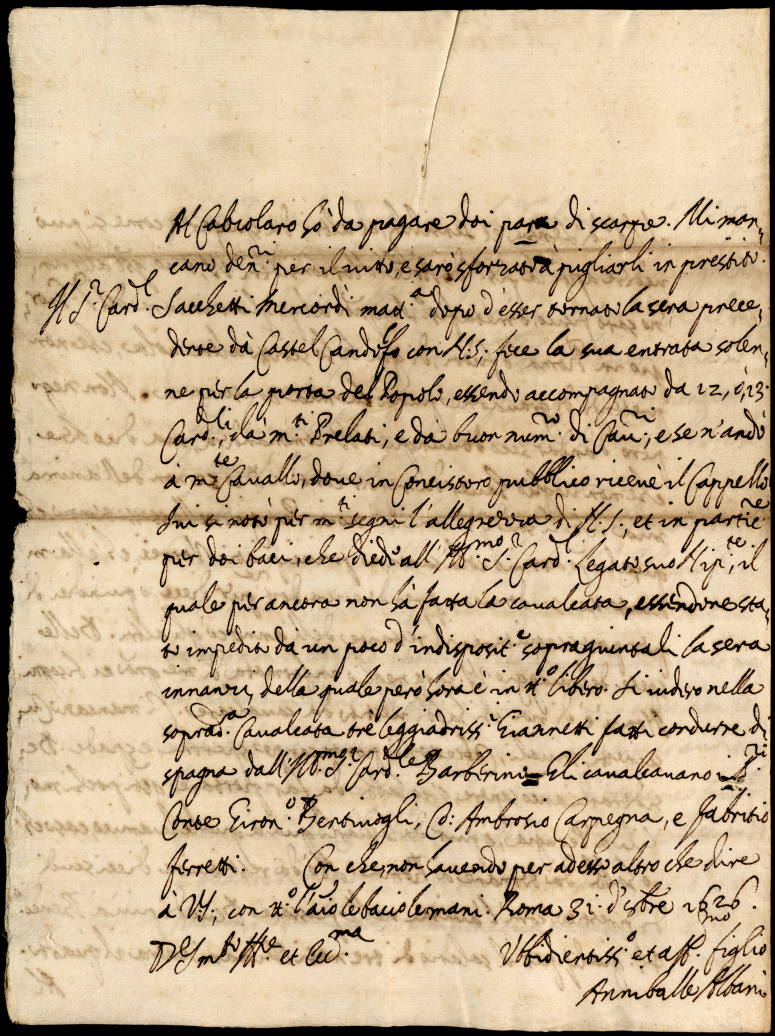 Al Calzolaro hò da pagare doi para di scarpe. Mi man-
cano den.ri per il vitto, e sarò sforzato à pigliarli in prestito.
Il S.r Card.l Sacchetti Mercordì matt.a dopo d'esser tornato la sera prece-
dente dà Castel Gandolfo con N.S.; fece la sua entrata solen-
ne per la porta del Popolo, essendo accompagnato da 12, ò 13
Card.li, dà m.ti Prelati, e dà buon num.ro di Cav.ri, e se n'andò
à m.te Cavallo, dove in Concistoro pubblico ricevè il Cappello
Ivi si notò per m.ti segni l'allegrezza di N.S., et in partic.e
per doi baci, che diede all' Ill.mo S.r Card.l Legato suo Nip.te, il
quale per ancora non hà fatta la cavalcata, essendone sta-
to impedito dà un poco d'indisposit.e sopragiuntali la sera
innanzi, della quale però hora è in tt.o libero. Si videro nella
soprad.a Cavalcata trè leggiadriss.i Giannetti fatti condurre di
spagna dall' Ill.mo S.r Card.le Barberini. Gli cavalcavano i S.ri
Conte Giron.o Bentivogli, C. Ambrosio Carpegna, e Fabritio
ferretti. Con che, non havendo per adesso altro che dire
à V.S., con tt.o l'aio le bacio le mani. Roma 31 d'8bre 1626.
D V.S m.to Ill.e et Ecc.ma Ubbidientiss.o et aff.mo figlio
Anniballe Albani